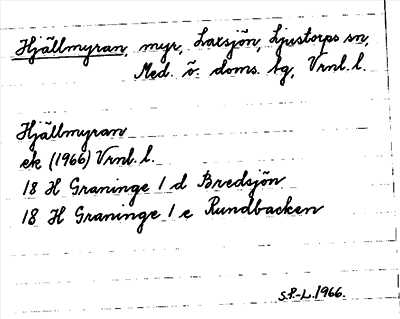 Hjällmyran, myr, Laxsjön, Ljustorps sn,
Med. ö. doms. tg, Vrnl. l.
Hjällmyran
ek (1966) Vrnl. l.
18 H Graninge 1 d Bredsjön
18 H Graninge 1 e Rundbacken
S.P.-L. 1966.